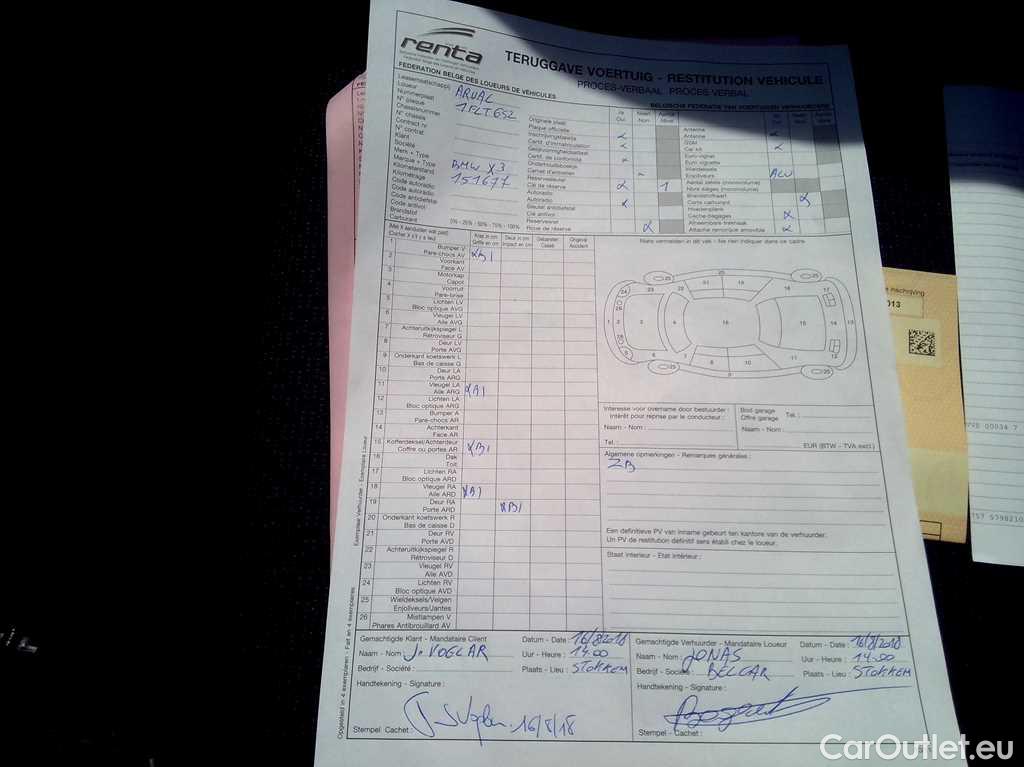 renta
TERUGGAVE VOERTUIG - RESTITUTION VEHICULE
PROCES-VERBAAL PROCES-VERBAL
FEDERATION BELGE DES LOUEURS DE VÉHICULES
BELGISCHE FEDERATIE VAN VOERTUIGEN VERHUURDERS
Leasemaatschappij
Loueur ARVAL
Nummerplaat
N° plaque 1PLT652
Chassisnummer
N° chassis
Contract nr
N° contrat
Klant
Société
Merk + Type
Marque + Type BMW X3
Kilometerstand
Kilométrage 151677
Code autoradio
Code autoradio
Code antidiefstal
Code antivol
Brandstof
Carburant 0% - 25% / 50% - 75% - 100%
Ja Neen Aantal
Oui Non Nbre
Originele plaat
Plaque officielle
Inschrijvingsbewijs
Certif. d'immatriculation
Gelijkvormigheidsattest
Certif. de conformité
Onderhoudsboekje
Carnet d'entretien
Reservesleutel
Clé de réserve 1
Autoradio
Autoradio
Sleutel antidiefstal
Clé antivol
Reservewiel
Roue de réserve
Ja Neen Aantal
Oui Non Nbre
Antenne
Antenne
GSM
Car kit
Euro-vignet
Euro vignette
Wieldeksels
Enjoliveurs ALU
Aantal zetels (monovolume)
Nbre sièges (monovolume)
Brandstofkaart
Carte carburant
Hoedenplank
Cache-bagages
Afneembare trekhaak
Attache remorque amovible
(Met X aanduiden wat past)
(Cocher X s'il y a lieu)
Kras in cm Deuk in cm Gebarsten Ongeval
Griffe en cm Impact en cm Cassé Accident
1 Bumper V
Pare-chocs AV XB1
2 Voorkant
Face AV
3 Motorkap
Capot
4 Voorruit
Pare-brise
5 Lichten LV
Bloc optique AVG
6 Vleugel LV
Aile AVG
7 Achteruitkijkspiegel L
Rétroviseur G
8 Deur LV
Porte AVG
9 Onderkant koetswerk L
Bas de caisse G
10 Deur LA
Porte ARG
11 Vleugel LA
Aile ARG XB1
12 Lichten LA
Bloc optique ARG
13 Bumper A
Pare-chocs AR
14 Achterkant
Face AR
15 Kofferdeksel/Achterdeur
Coffre ou portes AR XB1
16 Dak
Toit
17 Lichten RA
Bloc optique ARD
18 Vleugel RA
Aile ARD XB1
19 Deur RA
Porte ARD XB1
20 Onderkant koetswerk R
Bas de caisse D
21 Deur RV
Porte AVD
22 Achteruitkijkspiegel R
Rétroviseur D
23 Vleugel RV
Aile AVD
24 Lichten RV
Bloc optique AVD
25 Wieldeksels/Velgen
Enjoliveurs/Jantes
26 Mistlampen V
Phares Antibrouillard AV
Niets vermelden in dit vak - Ne rien indiquer dans ce cadre
Interesse voor overname door bestuurder :
Intérêt pour reprise par le conducteur :
Naam - Nom :
Tel. :
Bod garage
Offre garage Tel. :
Naam - Nom :
EUR (BTW - TVA excl.)
Algemene opmerkingen - Remarques générales :
ZB
Een definitieve PV van inname gebeurt ten kantore van de verhuurder.
Un PV de restitution definitif sera établi chez le loueur.
Staat interieur - Etat intérieur :
Gemachtigde Klant - Mandataire Client Datum - Date : 16/8/2018
Naam - Nom : J. VOGLAR Uur - Heure : 14.00
Bedrijf - Société : Plaats - Lieu : STOKKEM
Handtekening - Signature :
16/8/18
Stempel - Cachet :
Gemachtigde Verhuurder - Mandataire Loueur Datum - Date : 16/8/2018
Naam - Nom : JONAS Uur - Heure : 14.00
Bedrijf - Société : BELGAR Plaats - Lieu : STOKKEM
Handtekening - Signature :
Stempel - Cachet :
Opgesteld in 4 exemplaren - Fait en 4 exemplaires
Exemplaar Verhuurder - Exemplaire Loueur
inschrijving
013
CarOutlet.eu